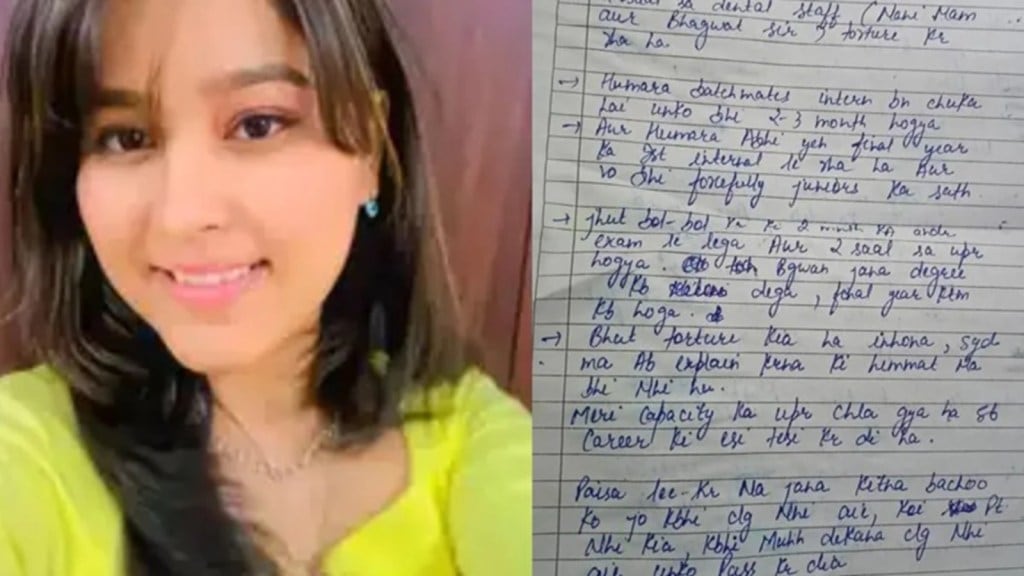 sa dental staff (
aur Bhagwat sir ne torture kr
rha ha.
→ Humara batchmates intern bn chuka
hai unko bhi 2-3 month hogya
→ Aur Humara Abhi yeh final year
ka 1st internal le rha ha Aur
wo bhi forcefully juniors ka sath
→ jhut bol-bol kr ki 2 month ka andr
exam le lega Aur 2 saal sa upr
hogya. Bgwan jana degree
Kb dega, final year ktm
Kb hoga.
→ Bhut torture kia ha inhona, syd
ma Ab explain krna ki himmat Na
bhi Nhi hu.
Meri Capacity ka upr chla gya ha sb
Career ki esi tesi kr di ha.
Paisa lee-kr Na jana kitna bachoo
ko jo kbhi clg Nhi air, koi Pt.
Nhi kia, kbhi Muhh dikana clg Nhi
air unko Pass kr dia